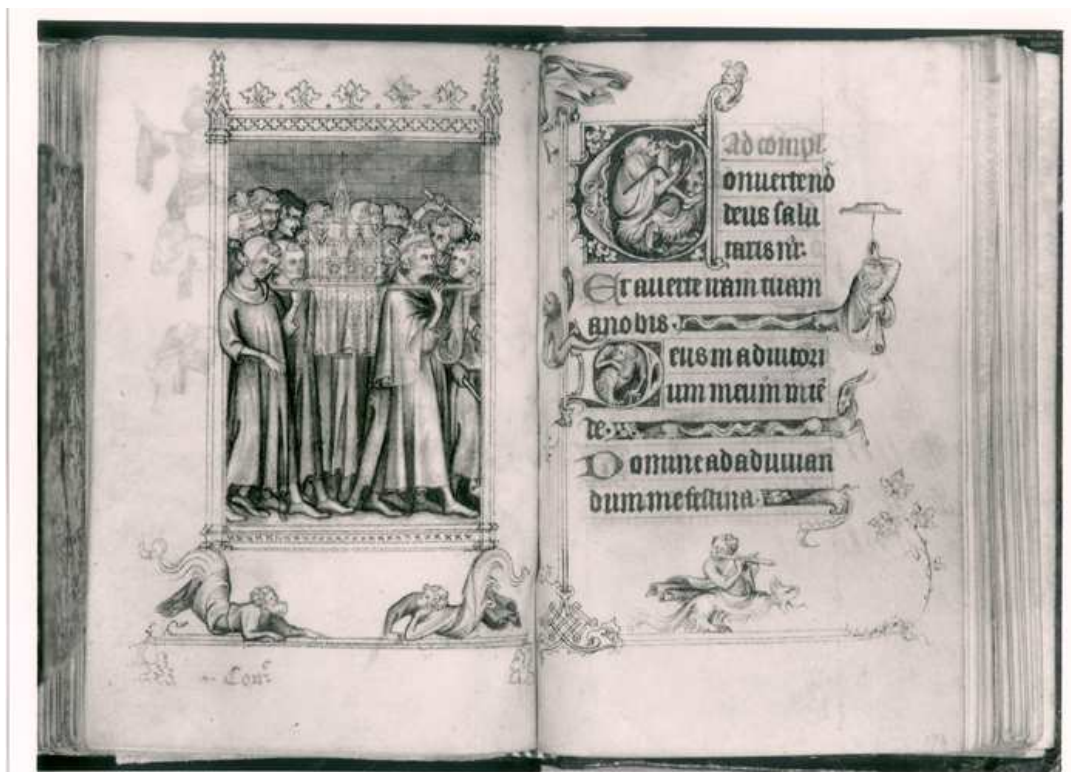 Com
Ad compl
onuertenō
deus salu
taris nr̄.
Et auerte iram tuam
a nobis.
Deus in adiutori
um meum intē
de.
Domine ad adiuuan
dum me festina.